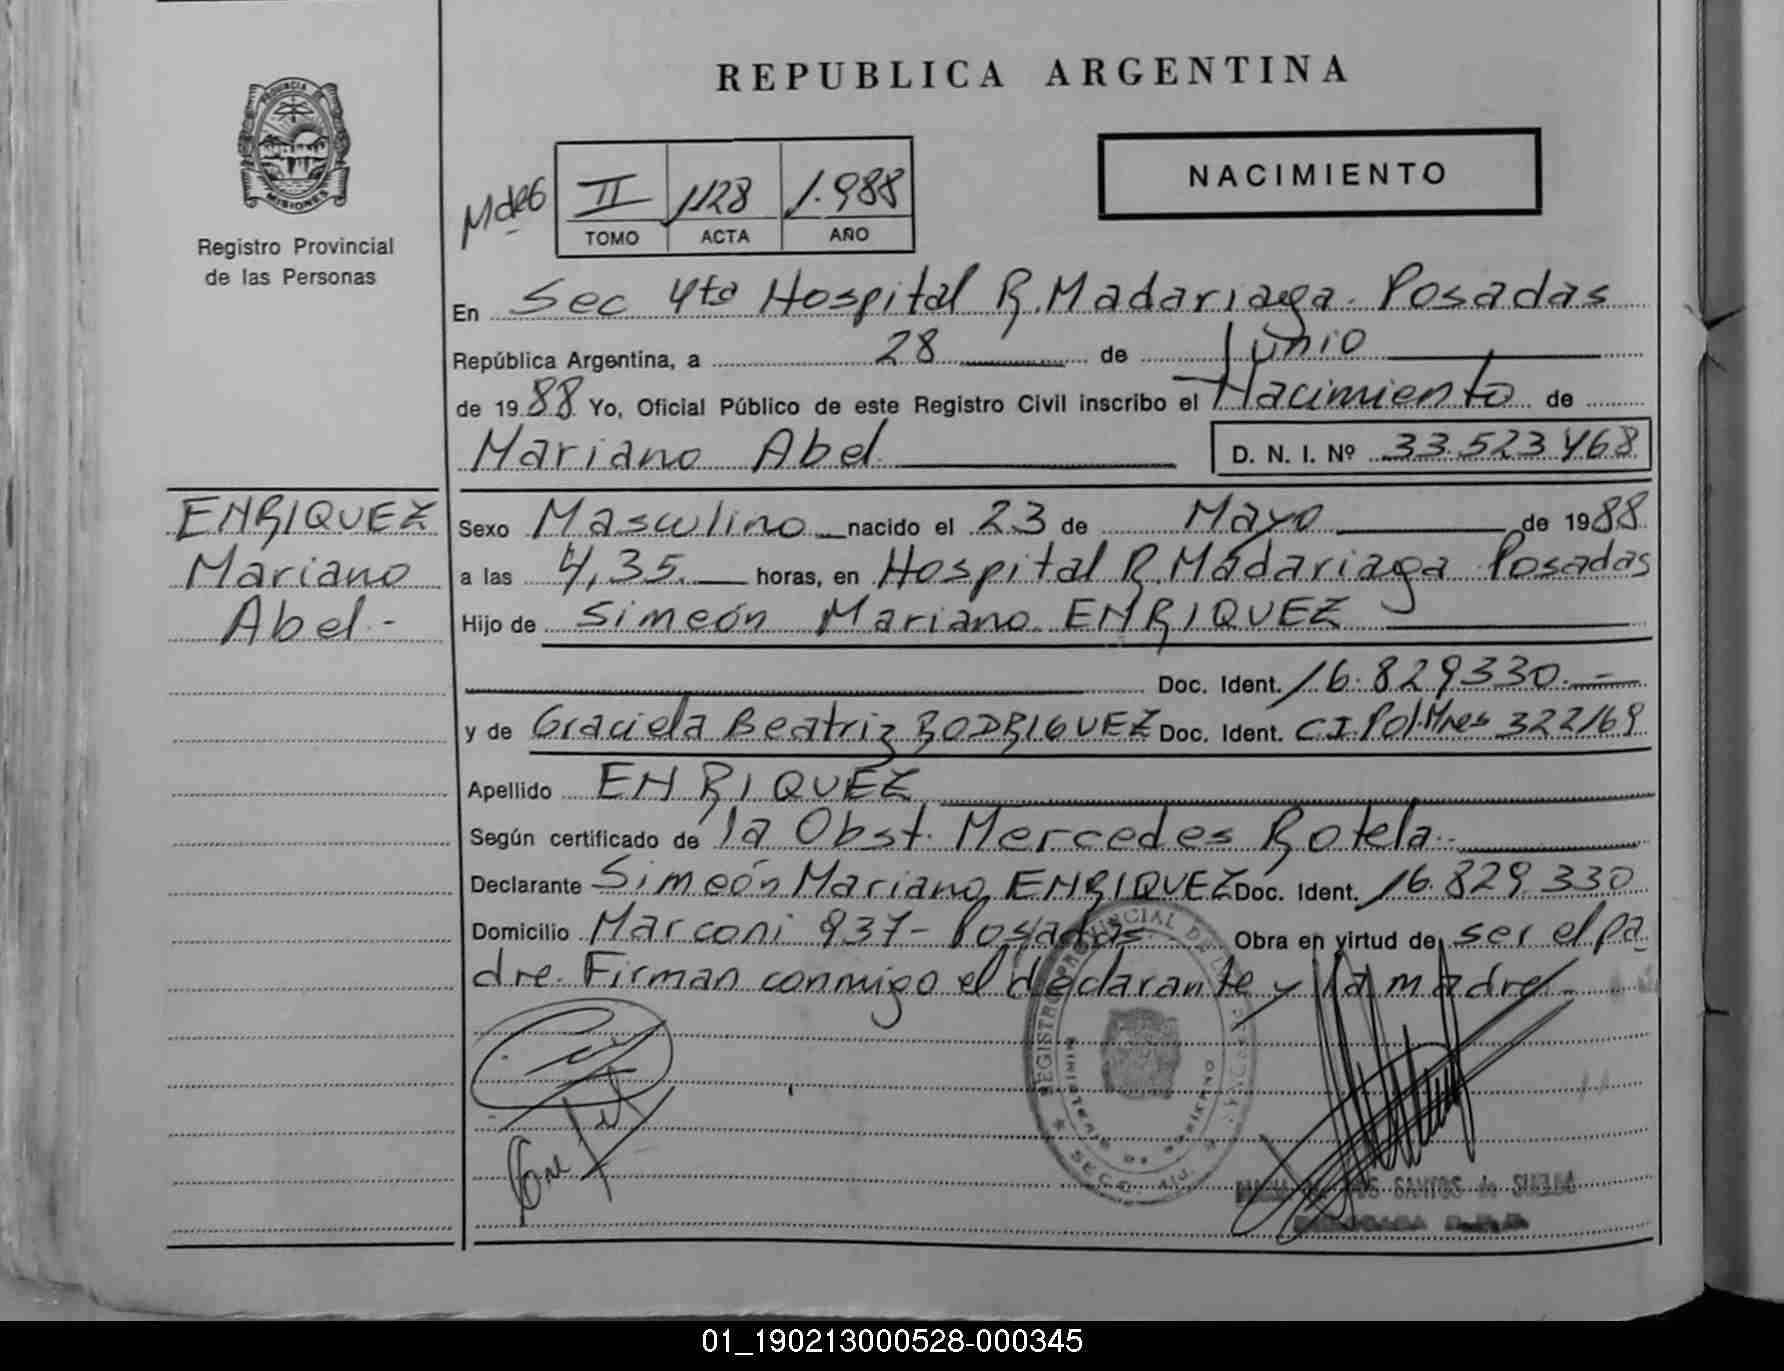 REPUBLICA ARGENTINA
PROVINCIA DE
MISIONES
Registro Provincial
de las Personas
NACIMIENTO
II 1128 1.988
TOMO ACTA AÑO
En Sec 4ta Hospital R. Madariaga. Posadas
República Argentina, a 28 de Junio
de 1988 Yo, Oficial Público de este Registro Civil inscribo el Nacimiento de
Mariano Abel D. N. I. Nº 33.523.468
ENRIQUEZ
Mariano
Abel -
Sexo Masculino nacido el 23 de Mayo de 1988
a las 4,35. horas, en Hospital R. Madariaga Posadas
Hijo de Simeón Mariano ENRIQUEZ
Doc. Ident. 16.829330.-
y de Graciela Beatriz RODRIGUEZ Doc. Ident. C.I. Pol. Mnes 322169
Apellido ENRIQUEZ
Según certificado de la Obst. Mercedes Rotela.
Declarante Simeón Mariano ENRIQUEZ Doc. Ident. 16.829.330
Domicilio Marconi 937- Posadas Obra en virtud de ser el pa
dre. Firman conmigo el declarante y la madre.
01_190213000528-000345